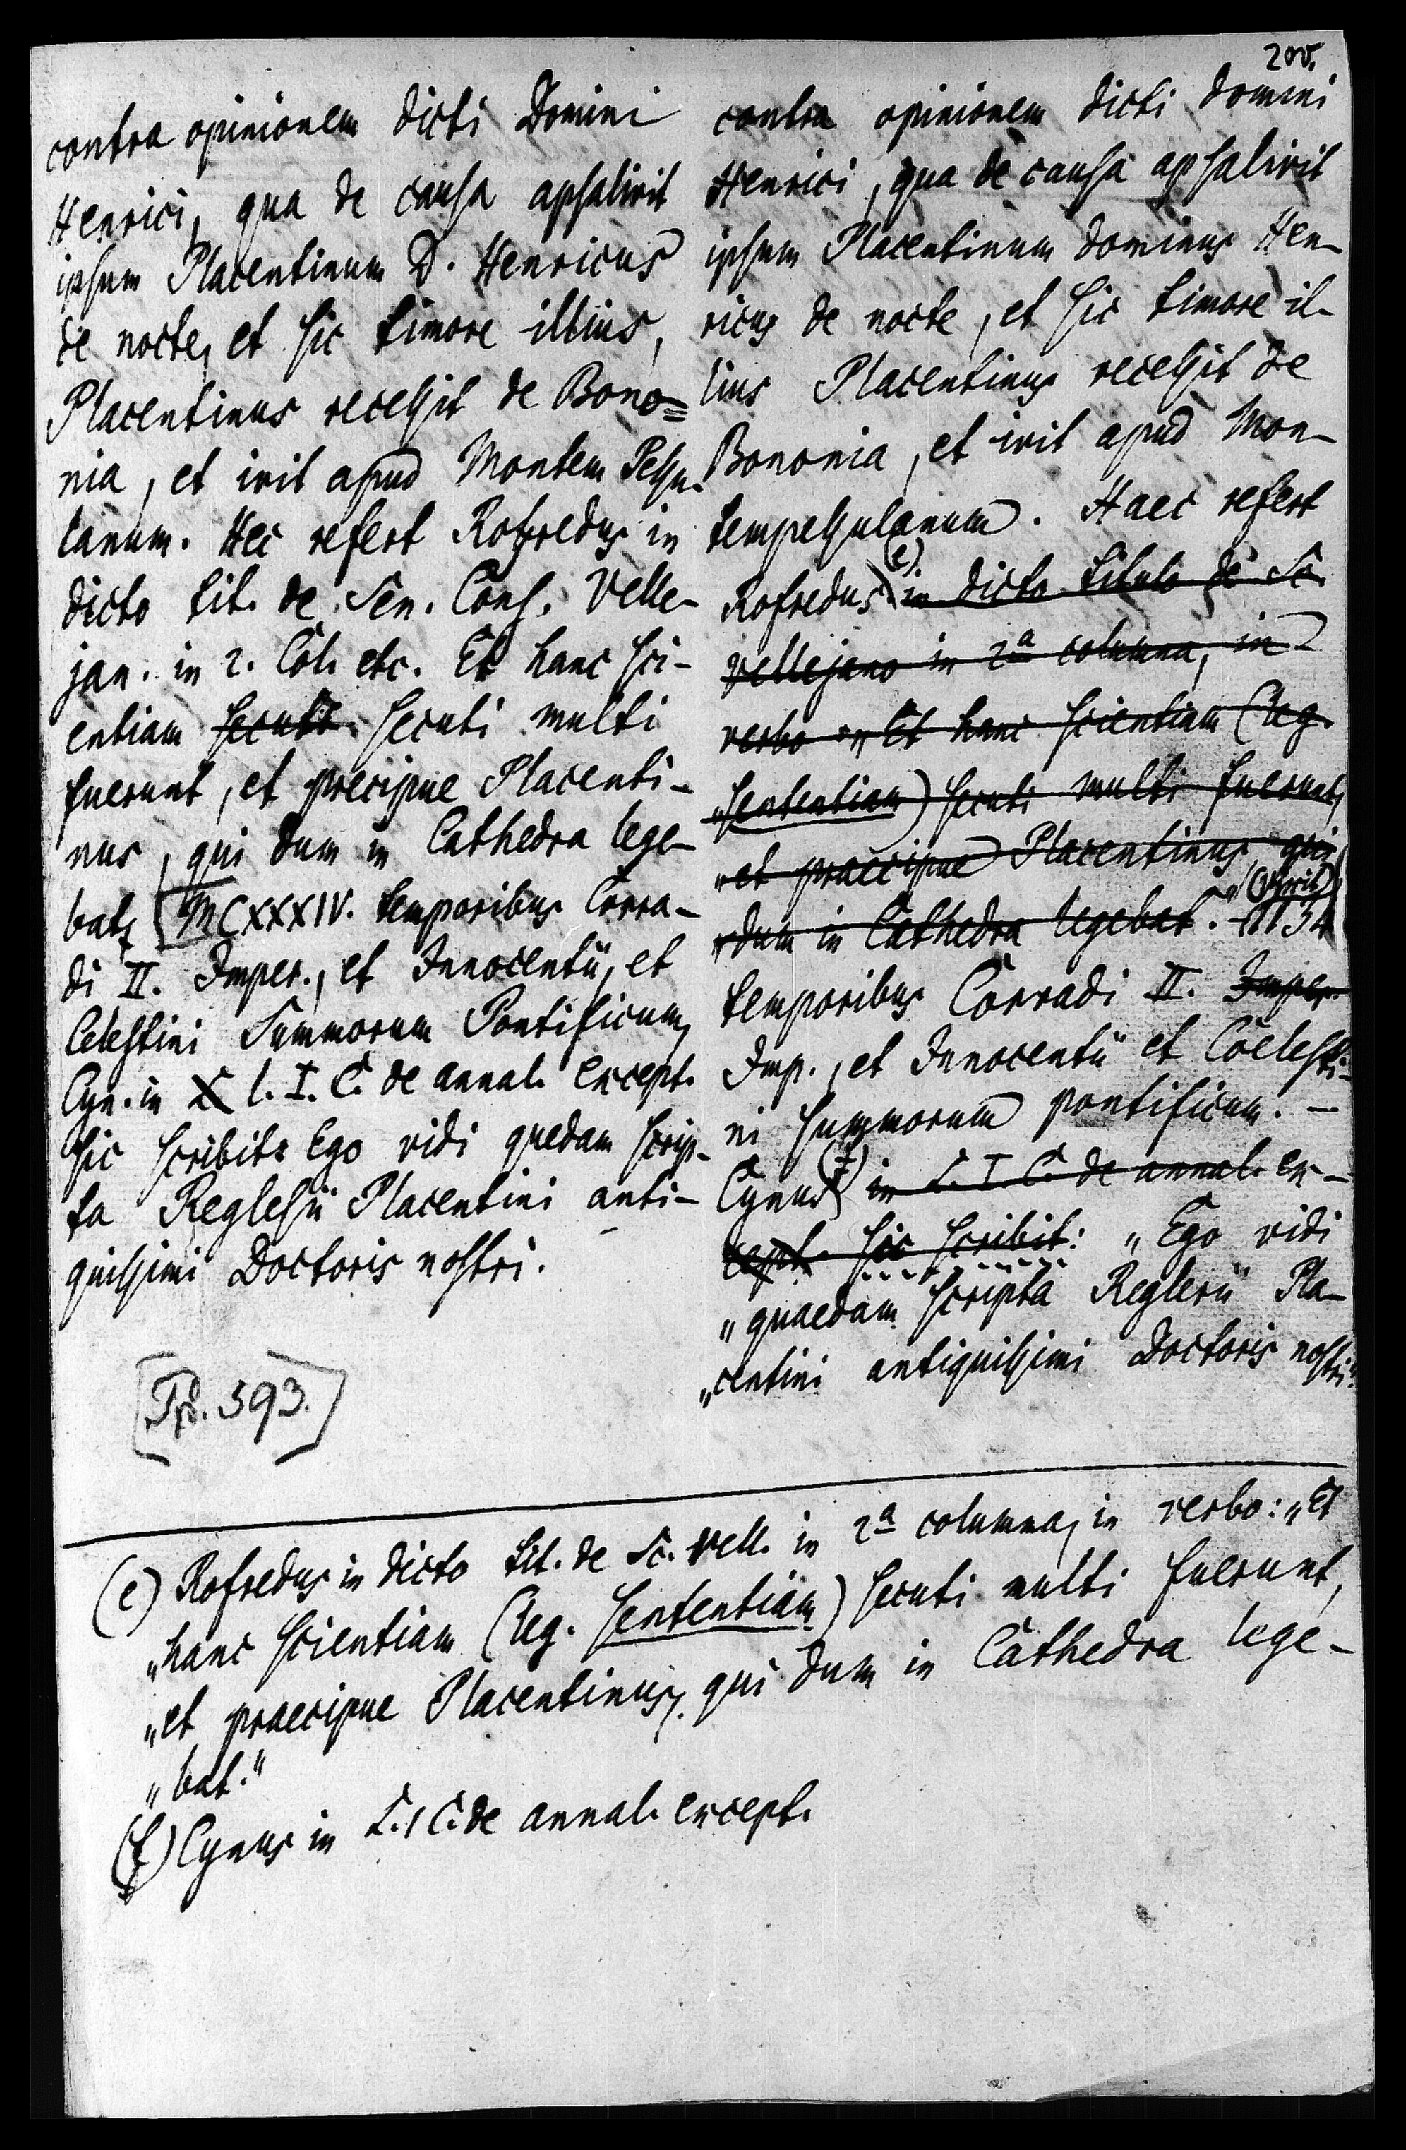 200.
contra opinionem dicti Domini
Henrici, qua de causa assalivit
ipsum Placentinum D. Henricus
de nocte, et sic timore illius,
Placentinus recessit de Bono=
nia, et ivit apud Montem Pessu-
lanum. Hec refert Rofredus in
dicto tit. de Sen. Cons. Velle-
jan. in 2. Col. etc. Et hanc sci-
entiam secuti secuti multi
fuerunt, et precipue Placenti-
nus, qui dum in Cathedra lege-
bat, [MCXXXIV. temporibus Corra-
di II. Imper., et Innocentii, et
Celestini Summorum Pontificum,
Cyn. in l. I. C. de annal. except.
sic scribit: Ego vidi quedam scrip-
ta Reglesii Placentini anti-
quissimi Doctoris nostri.
[Pp. 593.]
contra opinionem dicti domini
Henrici, qua de causa assalivit
ipsum Placentinum dominus Hen-
ricus de nocte, et sic timore il-
lius Placentinus recessit de
Bononia, et ivit apud Mon-
tempessulanum. Haec refert
Rofredus (e) in dicto titulo de Sc.
vellejano in 2a columna, in
verbo „Et hanc scientiam (leg.
„sententiam) secuti multi fuerunt,
„et praecipue Placentinus, qui
„dum in Cathedra legebat.“ 1134
temporibus Corradi II. Imper.
Imp., et Innocentii et Coelesti-
ni summorum pontificum. —
Cynus (f) in L. I. C. de annal. ex-
cept. sic scribit: „Ego vidi
„quaedam scripta Reglerii Pla-
„centini antiquissimi Doctoris nostri“.
(e) Rofredus in dicto tit. de Sc. Vell. in 2a columna, in verbo: „Et
„hanc scientiam (leg. sententiam) secuti multi fuerunt,
„et praecipue Placentinus, qui dum in Cathedra lege-
„bat.“
(f) Cynus in L. 1 C. de annal. except.